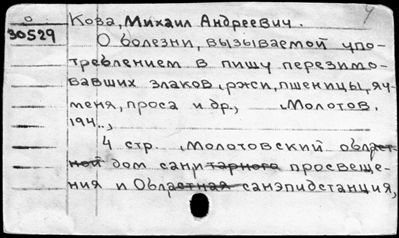 0 Коза, Михаил Андреевич. 4
30529
О болезни, вызываемой упо-
треблением в пищу перезимо-
вавших злаков, ржи, пшеницы, яч-
меня, проса и др., Молотов,
194..,
4 стр. Молотовский област-
ной дом санитарного просвеще-
ния и Областная санэпидстанция,